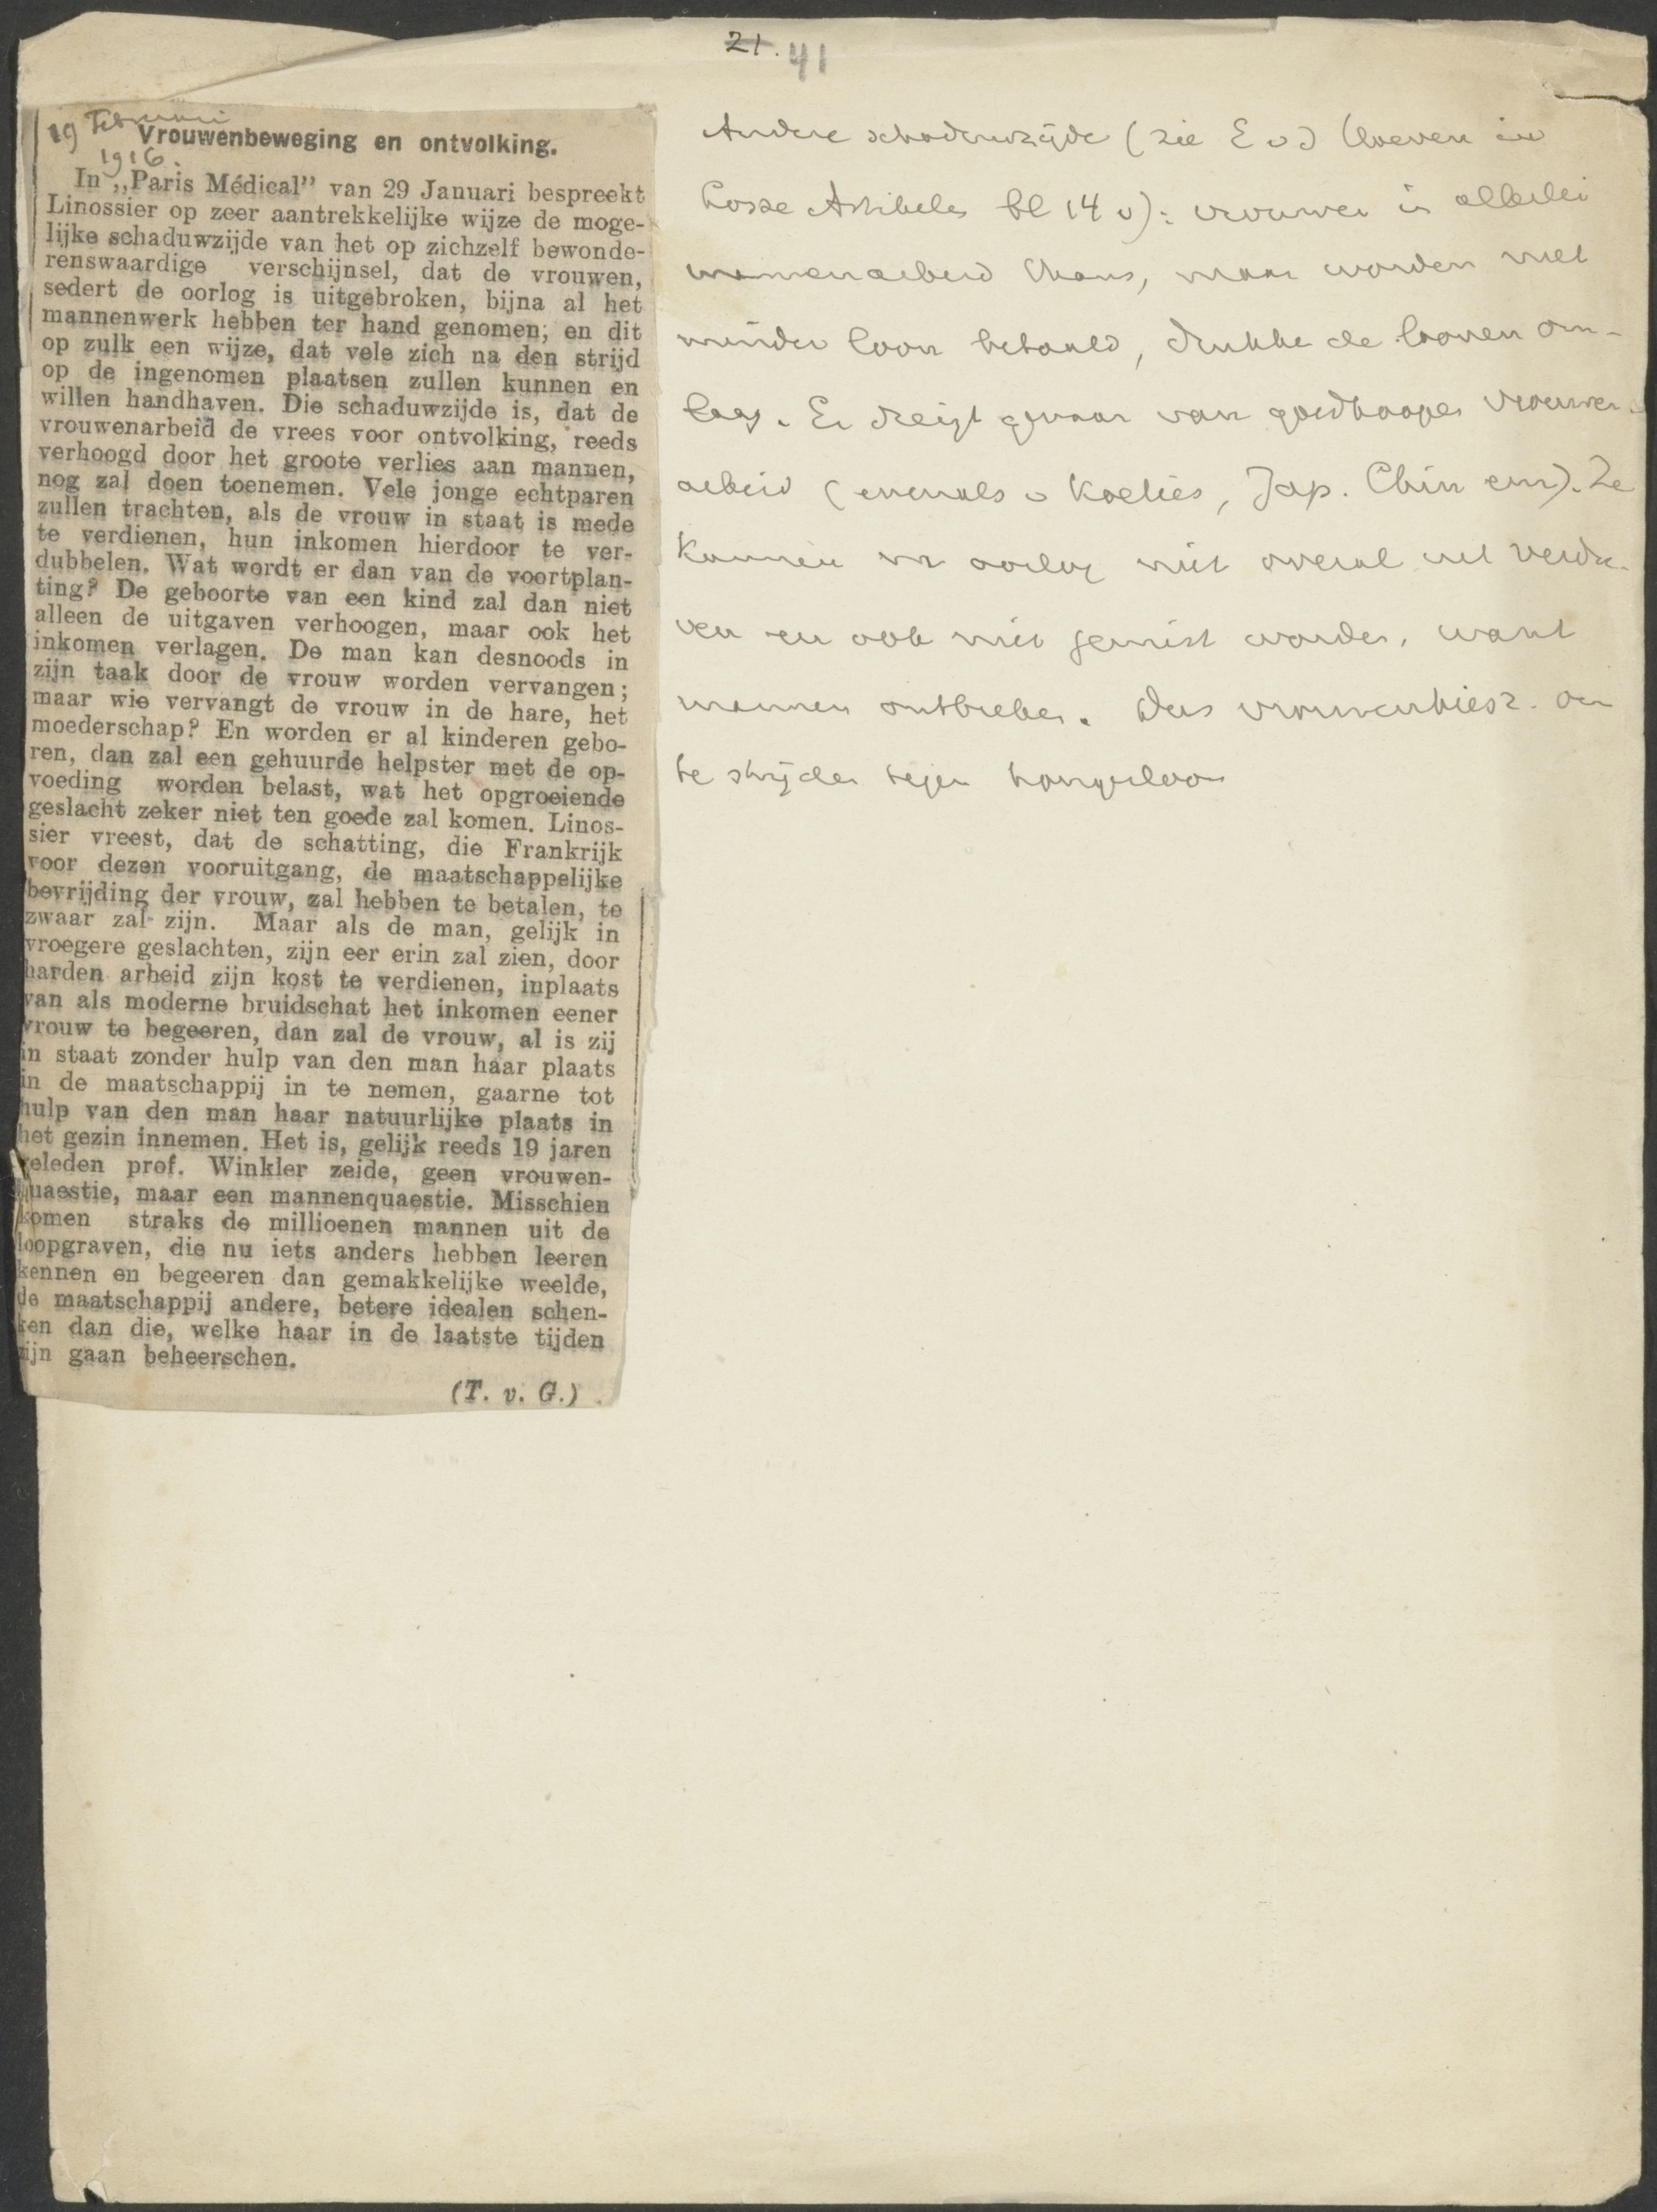 21. 41
19 Februari
1916.
Vrouwenbeweging en ontvolking.
In „Paris Médical” van 29 Januari bespreekt
Linossier op zeer aantrekkelijke wijze de moge-
lijke schaduwzijde van het op zichzelf bewonde-
renswaardige verschijnsel, dat de vrouwen,
sedert de oorlog is uitgebroken, bijna al het
mannenwerk hebben ter hand genomen; en dit
op zulk een wijze, dat vele zich na den strijd
op de ingenomen plaatsen zullen kunnen en
willen handhaven. Die schaduwzijde is, dat de
vrouwenarbeid de vrees voor ontvolking, reeds
verhoogd door het groote verlies aan mannen,
nog zal doen toenemen. Vele jonge echtparen
zullen trachten, als de vrouw in staat is mede
te verdienen, hun inkomen hierdoor te ver-
dubbelen. Wat wordt er dan van de voortplan-
ting? De geboorte van een kind zal dan niet
alleen de uitgaven verhoogen, maar ook het
inkomen verlagen. De man kan desnoods in
zijn taak door de vrouw worden vervangen;
maar wie vervangt de vrouw in de hare, het
moederschap? En worden er al kinderen gebo-
ren, dan zal een gehuurde helpster met de op-
voeding worden belast, wat het opgroeiende
geslacht zeker niet ten goede zal komen. Linos-
sier vreest, dat de schatting, die Frankrijk
voor dezen vooruitgang, de maatschappelijke
bevrijding der vrouw, zal hebben te betalen, te
zwaar zal zijn. Maar als de man, gelijk in
vroegere geslachten, zijn eer erin zal zien, door
harden arbeid zijn kost te verdienen, inplaats
van als moderne bruidschat het inkomen eener
vrouw te begeeren, dan zal de vrouw, al is zij
in staat zonder hulp van den man haar plaats
in de maatschappij in te nemen, gaarne tot
hulp van den man haar natuurlijke plaats in
het gezin innemen. Het is, gelijk reeds 19 jaren
geleden prof. Winkler zeide, geen vrouwen-
quaestie, maar een mannenquaestie. Misschien
komen straks de millioenen mannen uit de
loopgraven, die nu iets anders hebben leeren
kennen en begeeren dan gemakkelijke weelde,
de maatschappij andere, betere idealen schen-
ken dan die, welke haar in de laatste tijden
zijn gaan beheerschen.
(T. v. G.)
Andere schaduwzijde (zie E v d Hoeven in
Losse Artikelen bl 14 v): vrouwen in allerlei
mannenarbeid thans, maar worden met
minder loon betaald, drukke de loonen om-
laag. Er dreigt gevaar van goedkoope vrouwen-
arbeid (evenals v Koelies, Jap. Chin enz). Ze
kunnen na oorlog niet overal uit verdre-
ven en ook niet gemist worden, want
mannen ontbreken. Dus vrouwenkiesr. om
te strijden tegen hongerloon